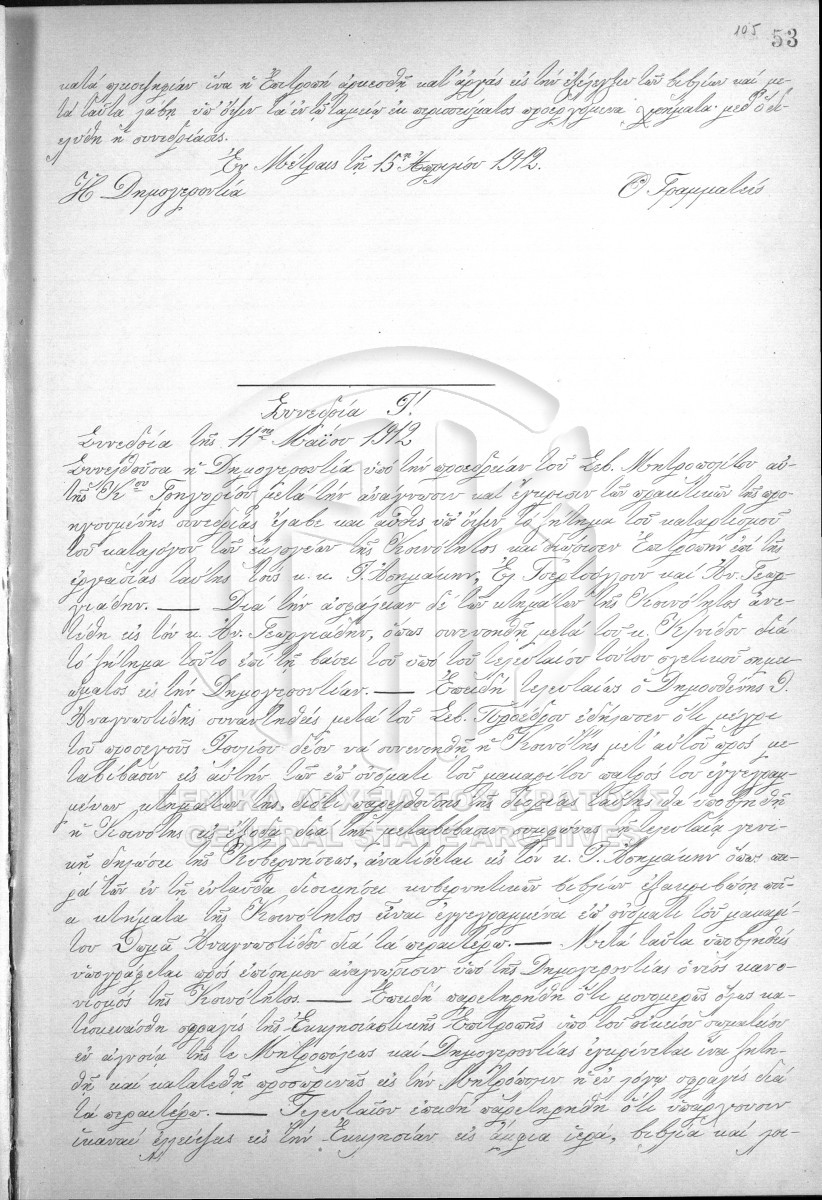 105 53
κατὰ πλειοψηφίαν ἵνα ἡ Ἐπιτροπὴ ἀρκεσθῇ κατ' ἀρχὰς εἰς τὴν ἐξέλεγξιν τῶν βιβλίων καὶ με-
τὰ ταῦτα λάβῃ ὑπ' ὄψιν τὰ ἐν τῷ ταμείῳ ἐκ περισσεύματος προερχόμενα χρήματα· μεθ' ὃ ἐλ-
λύθη ἡ συνεδρίασις.
Ἐν Μέτραις τῇ 15ῃ Ἀπριλίου 1912.
Ἡ Δημογεροντία Ὁ Γραμματεύς
Συνεδρία Γ!
Συνεδρία τῆς 11ης Μαΐου 1912
Συνελθοῦσα ἡ Δημογεροντία ὑπὸ τὴν προεδρείαν τοῦ Σεβ. Μητροπολίτου αὐ-
τῆς Κου Γρηγορίου μετὰ τὴν ἀνάγνωσιν καὶ ἔγκρισιν τῶν πρακτικῶν τῆς προ-
ηγουμένης συνεδρίας ἔλαβε καὶ αὖθις ὑπ' ὄψιν τὸ ζήτημα τοῦ καταρτισμοῦ
τοῦ καταλόγου τῶν ἐκλογέων τῆς Κοινότητος καὶ διώρισεν Ἐπιτροπὴν ἐπὶ τῆς
ἐργασίας ταύτης τοὺς κ. κ. Γ. Ἀσημάκην, Ἐλ. Τσερτσόγλουν καὶ Ἀν. Γεωρ-
γιάδην. — Διὰ τὴν ἀσφάλειαν δὲ τῶν κτημάτων τῆς Κοινότητος ἀνε-
τέθη εἰς τὸν κ. Ἀν. Γεωργιάδην, ὅπως συνεννοηθῇ μετὰ τοῦ κ. διὰ
τὸ ζήτημα τοῦτο ἐπὶ τῇ βάσει τοῦ ὑπὸ τοῦ τελευταίου τούτου σχετικοῦ σημει-
ώματος εἰς τὴν Δημογεροντίαν. — Ἐπειδὴ τελευταίως ὁ Δημοσθένης Θ.
Ἀναγνωστίδης συναντηθεὶς μετὰ τοῦ Σεβ. Προέδρου ἐδήλωσεν ὅτι μέχρι
τοῦ προσεχοῦς Ἰουλίου δέον νὰ συνεννοηθῇ ἡ Κοινότης μετ' αὐτοῦ πρὸς με-
ταβίβασιν εἰς αὐτὴν τῶν ἐπ' ὀνόματι τοῦ μακαρίτου πατρός του ἐγγεγραμ-
μένων κτημάτων της, διότι παρελθούσης τῆς διορίας ταύτης θὰ ὑποβληθῇ
ἡ Κοινότης εἰς ἔξοδα διὰ τὴν μεταβίβασιν συμφώνως τῇ τελευταίᾳ γενι-
κῇ δηλώσει τῆς Κυβερνήσεως, ἀνατίθεται εἰς τὸν κ. Γ. Ἀσημάκην ὅπως πα-
ρὰ τῶν ἐν τῇ ἐνταῦθα διοικήσει κυβερνητικῶν βιβλίων ἐξακριβώσῃ ποῖ-
α κτήματα τῆς Κοινότητος εἶναι ἐγγεγραμμένα ἐπ' ὀνόματι τοῦ μακαρί-
του Θωμᾶ Ἀναγνωστίδου διὰ τὰ περαιτέρω. — Μετὰ ταῦτα ὑποβληθεὶς
ὑπογράφεται πρὸς ἐπίσημον ἀναγνώρισιν ὑπὸ τῆς Δημογεροντίας ὁ νέος κανο-
νισμὸς τῆς Κοινότητος. — Ἐπειδὴ παρετηρήθη ὅτι μονομερῶς ὅλως κα-
τεσκευάσθη σφραγὶς τῆς Ἐκκλησιαστικῆς Ἐπιτροπῆς ὑπὸ τοῦ οἰκείου σωματείου
ἐν ἀγνοίᾳ τῆς τε Μητροπόλεως καὶ Δημογεροντίας ἐγκρίνεται ἵνα ζητη-
θῇ καὶ κατατεθῇ προσωρινῶς εἰς τὴν Μητρόπολιν ἡ ἐν λόγῳ σφραγὶς διὰ
τὰ περαιτέρω. — Τελευταῖον ἐπειδὴ παρετηρήθη ὅτι ὑπάρχουσιν
ἱκαναὶ ἐλλείψεις εἰς τὴν Ἐκκλησίαν εἰς ἄμφια ἱερά, βιβλία καὶ λοι-
ΓΕΝΙΚΑ ΑΡΧΕΙΑ ΤΟΥ ΚΡΑΤΟΥΣ
GENERAL STATE ARCHIVES